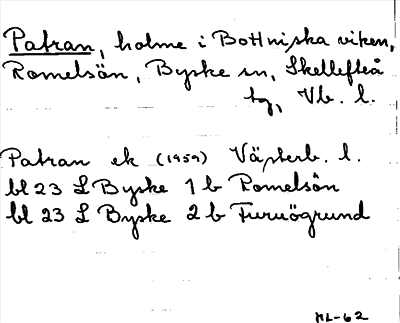 Patran, holme i Bottniska viken,
Romelsön, Byske sn, Skellefteå
tg, Vb. l.
Patran ek (1959) Västerb. l.
bl 23 L Byske 1 b Romelsön
bl 23 L Byske 2 b Furuögrund
ML-62